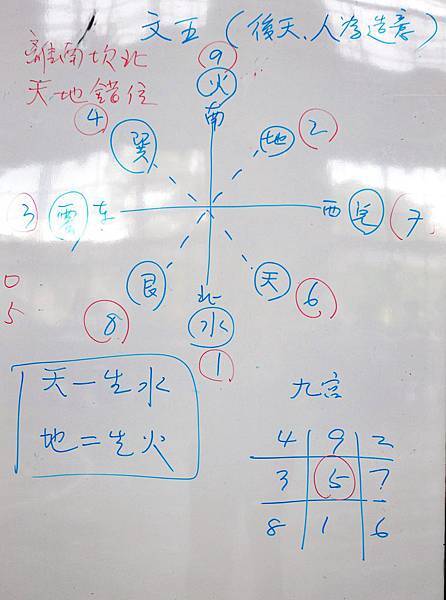 文王(後天、人为造意)
離南坎北
天地錯位
9
火
南
4
巽
地
2
3
震
东
西
兑
7
0
5
艮
8
北
水
1
天
6
天一生水
地二生火
九宮
4 9 2
3 5 7
8 1 6